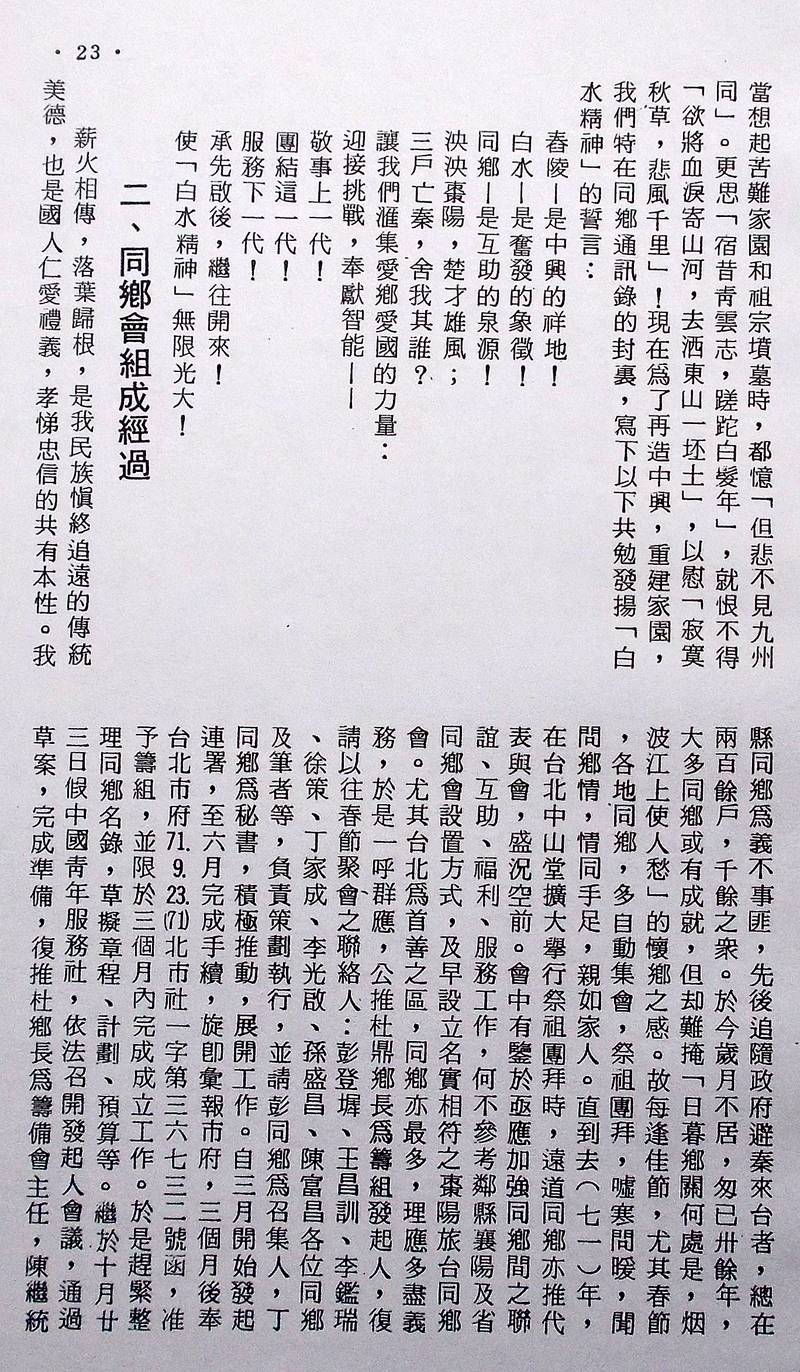 ・23・
當想起苦難家園和祖宗墳墓時，都憶「但悲不見九州
同」。更思「宿昔靑雲志，蹉跎白髮年」，就恨不得
「欲將血淚寄山河，去洒東山一坯土」，以慰「寂寞
秋草，悲風千里」！現在爲了再造中興，重建家園，
我們特在同鄉通訊錄的封裏，寫下以下共勉發揚「白
水精神」的誓言：
舂陵—是中興的祥地！
白水—是奮發的象徵！
同鄉—是互助的泉源！
泱泱棗陽，楚才雄風；
三戶亡秦，舍我其誰？
讓我們滙集愛鄉愛國的力量：
迎接挑戰，奉獻智能——
敬事上一代！
團結這一代！
服務下一代！
承先啟後，繼往開來！
使「白水精神」無限光大！
二、同鄉會組成經過
薪火相傳，落葉歸根，是我民族愼終追遠的傳統
美德，也是國人仁愛禮義，孝悌忠信的共有本性。我
縣同鄉爲義不事匪，先後追隨政府避秦來台者，總在
兩百餘戶，千餘之衆。於今歲月不居，匆已卅餘年，
大多同鄉或有成就，但却難掩「日暮鄉關何處是，烟
波江上使人愁」的懷鄉之感。故每逢佳節，尤其春節
，各地同鄉，多自動集會，祭祖團拜，噓寒問暖，聞
問鄉情，情同手足，親如家人。直到去（七一）年，
在台北中山堂擴大舉行祭祖團拜時，遠道同鄉亦推代
表與會，盛況空前。會中有鑒於亟應加強同鄉間之聯
誼、互助、福利、服務工作，何不參考鄰縣襄陽及省
同鄉會設置方式，及早設立名實相符之棗陽旅台同鄉
會。尤其台北爲首善之區，同鄉亦最多，理應多盡義
務，於是一呼群應，公推杜鼎鄉長爲籌組發起人，復
請以往春節聚會之聯絡人：彭登墀、王昌訓、李鑑瑞
、徐策、丁家成、李光啟、孫盛昌、陳富昌各位同鄉
及筆者等，負責策劃執行，並請彭同鄉爲召集人，丁
同鄉爲秘書，積極推動，展開工作。自三月開始發起
連署，至六月完成手續，旋卽彙報市府，三個月後奉
台北市府71.9.23.(71)北市社一字第三六七三二號函，准
予籌組，並限於三個月內完成成立工作。於是趕緊整
理同鄉名錄，草擬章程、計劃、預算等。繼於十月廿
三日假中國靑年服務社，依法召開發起人會議，通過
草案，完成準備，復推杜鄉長爲籌備會主任，陳繼統